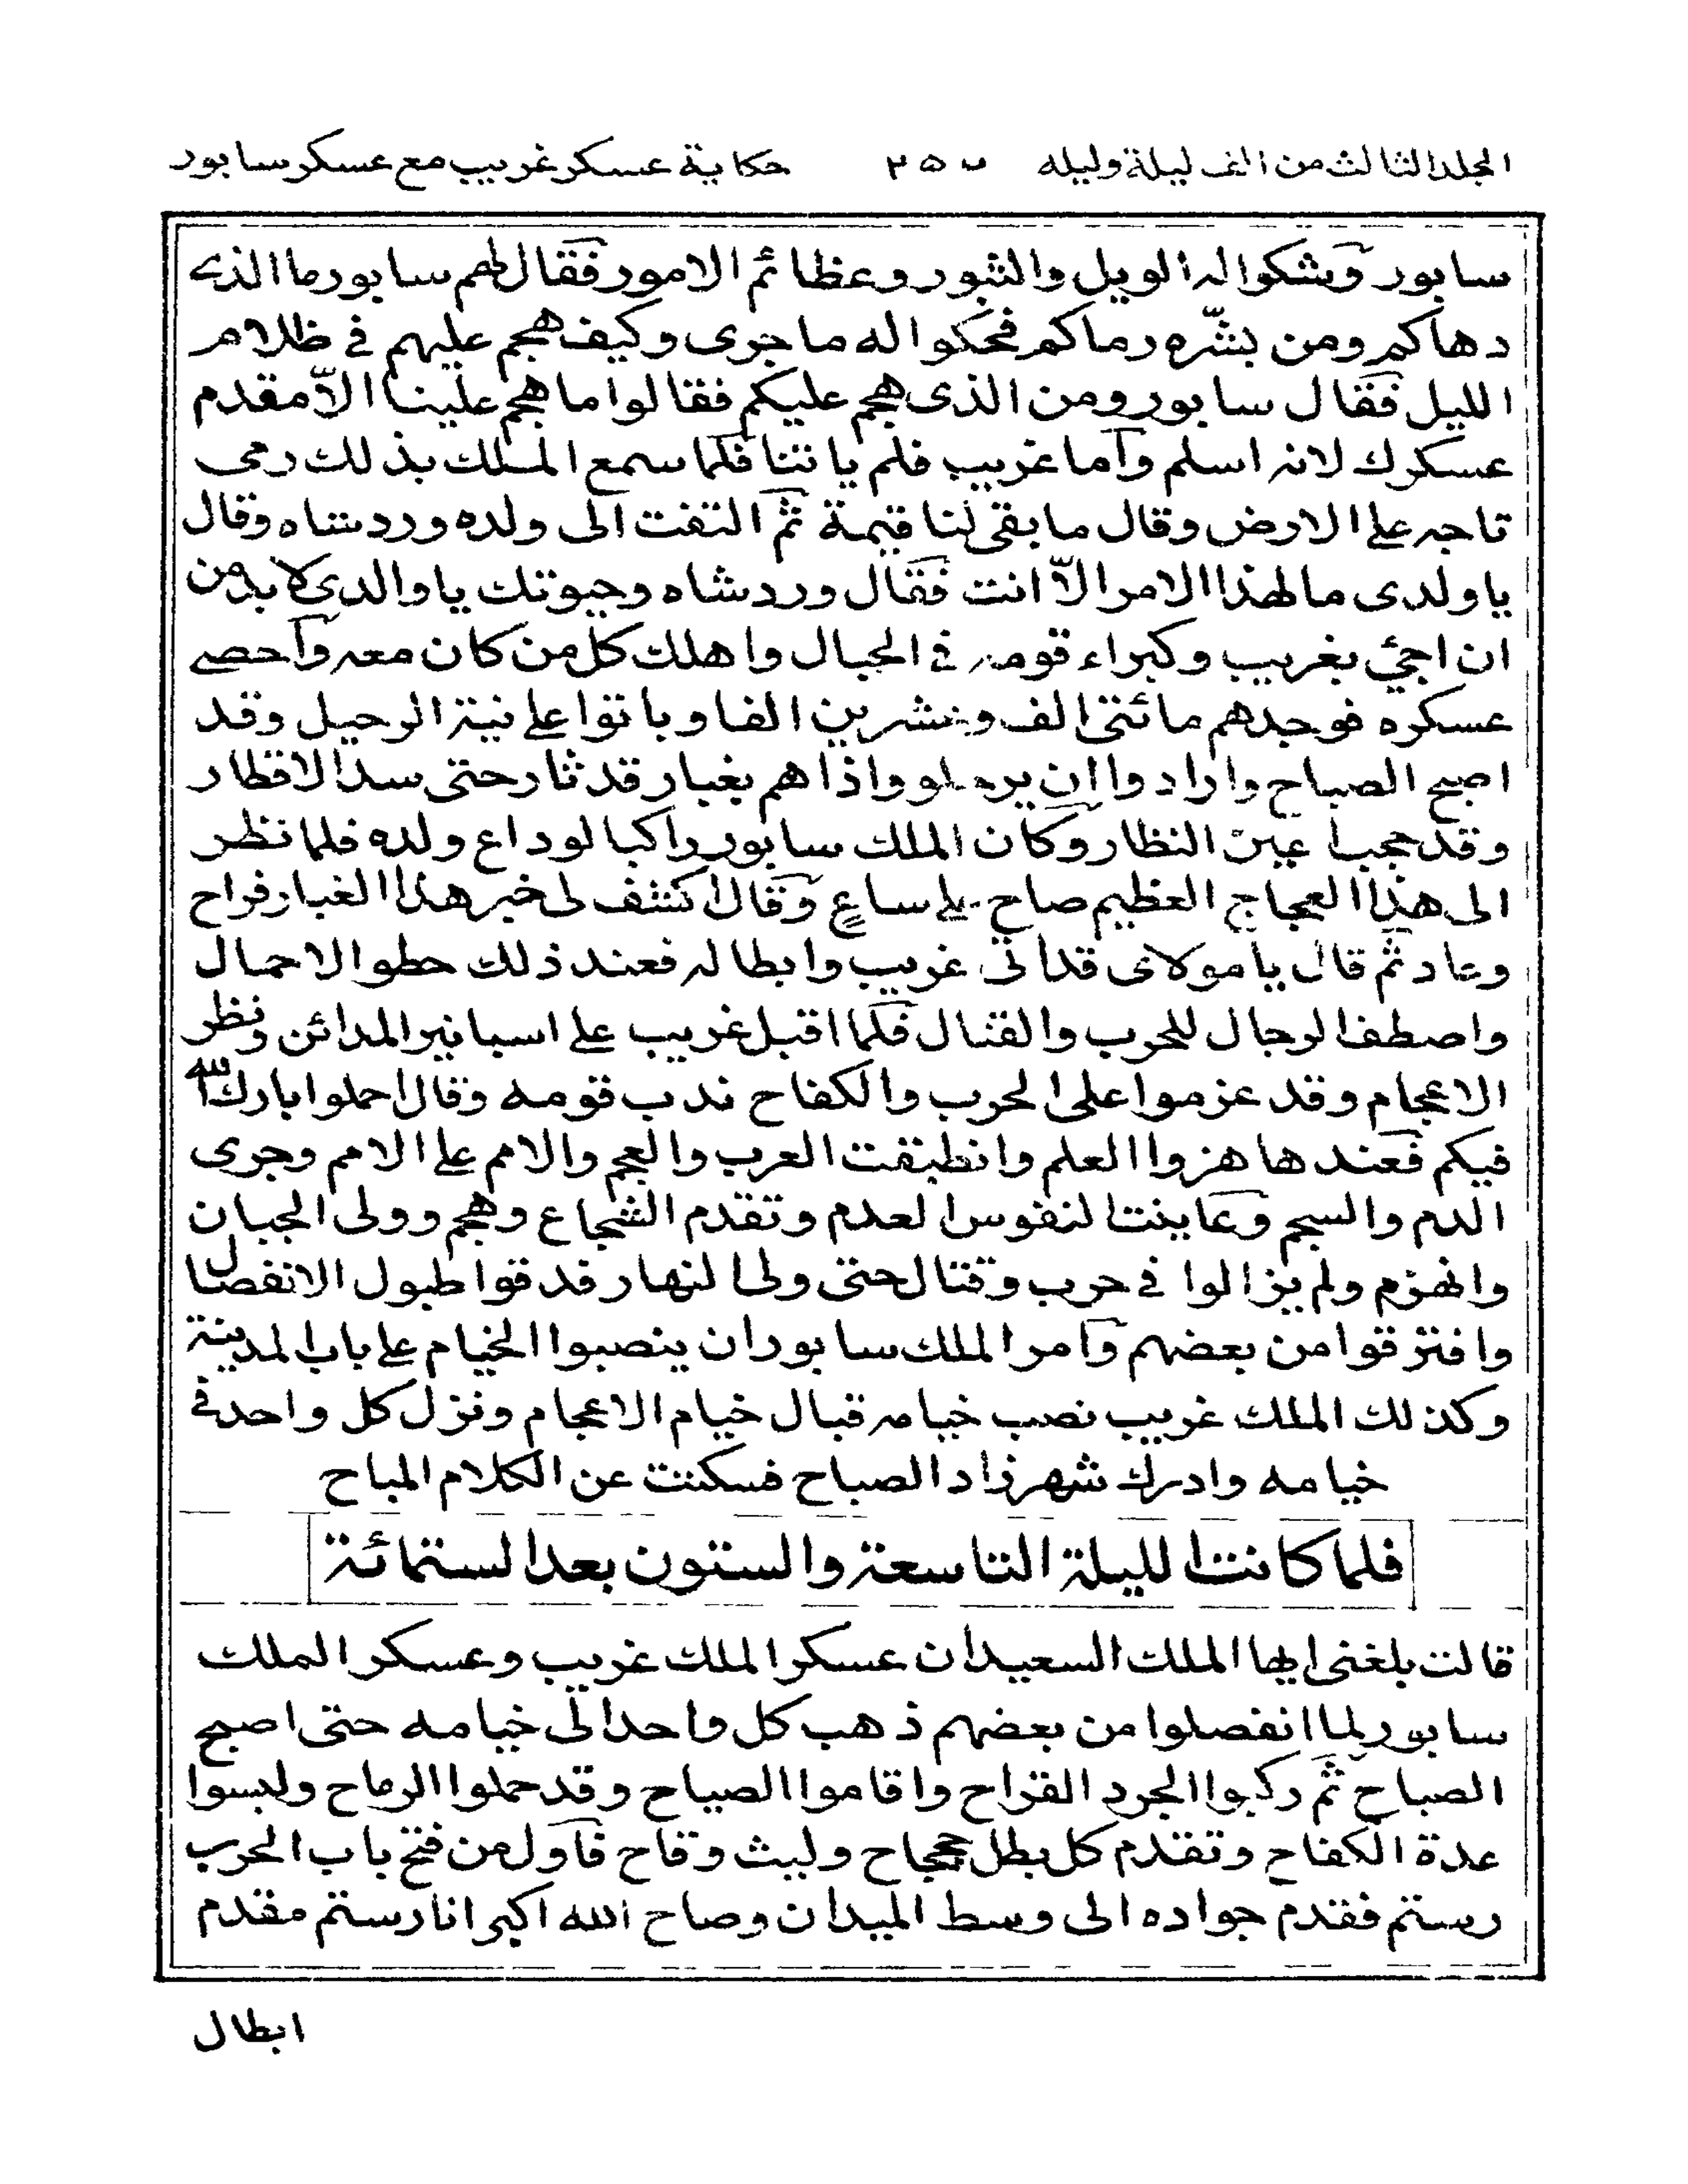 المجلد الثالث من الف ليلة وليله ٢٥٦ حكاية عسكر غريب مع عسكر سابور
سابور وشكوا له الويل والثبور وعظائم الامور فقال لهم سابور ما الذى
دهاكم ومن بشرّه رماكم فحكوا له ما جرى وكيف هجم عليهم فى ظلام
الليل فقال سابور ومن الذى هجم عليكم فقالوا ما هجم علينا الاّ مقدم
عسكرك لانه اسلم واما غريب فلم ياتنا فلما سمع الملك بذلك رمى
تاجه على الارض وقال ما بقى لنا قيمة ثم التفت الى ولده ورد شاه وقال
يا ولدى ما لهذا الامر الاّ انت فقال ورد شاه وحيوتك يا والدى لا بد من
ان اجئ بغريب وكبراء قومه فى الحبال واهلك كل من كان معه واحصى
عسكره فوجدهم مائتى الف وعشرين الفا وباتوا على نية الرحيل وقد
اصبح الصباح وارادوا ان يرحلو واذا هم بغبار قد ثار حتى سد الاقطار
وقد حجب عين النظار وكان الملك سابور راكبا لوداع ولده فلما نظر
الى هذا العجاج العظيم صاح على ساعٍ وقال اكشف لى خبر هذا الغبار فراح
وعاد ثم قال يا مولاى قد اتى غريب وابطاله فعند ذلك حطو الاحمال
واصطف الرجال للحرب والقتال فلما اقبل غريب على اسبانير المدائن ونظر
الاعجام وقد عزموا على الحرب والكفاح ندب قومه وقال احملوا بارك الله
فيكم فعندها هزوا العلم وانطبقت العرب والعجم والامم على الامم وجرى
الدم والسجم وعاينت النفوس العدم وتقدم الشجاع وهجم وولى الجبان
وانهزم ولم يزالوا فى حرب وقتال حتى ولى النهار فدقوا طبول الانفصال
وافترقوا من بعضهم وامر الملك سابور ان ينصبوا الخيام على باب المدينة
وكذلك الملك غريب نصب خيامه قبال خيام الاعجام ونزل كل واحد فى
خيامه وادرك شهرزاد الصباح فسكتت عن الكلام المباح
فلما كانت الليلة التاسعة والستون بعد الستمائة
قالت بلغنى ايها الملك السعيد ان عسكر الملك غريب وعسكر الملك
سابور لما انفصلوا من بعضهم ذهب كل واحد الى خيامه حتى اصبح
الصباح ثم ركبوا الجرد القراح واقاموا الصياح وقد حملوا الرماح ولبسوا
عدة الكفاح وتقدم كل بطل جحجاح وليث وقاح فاول من فتح باب الحرب
رستم فقدم جواده الى وسط الميدان وصاح الله اكبر انا رستم مقدم
ابطال